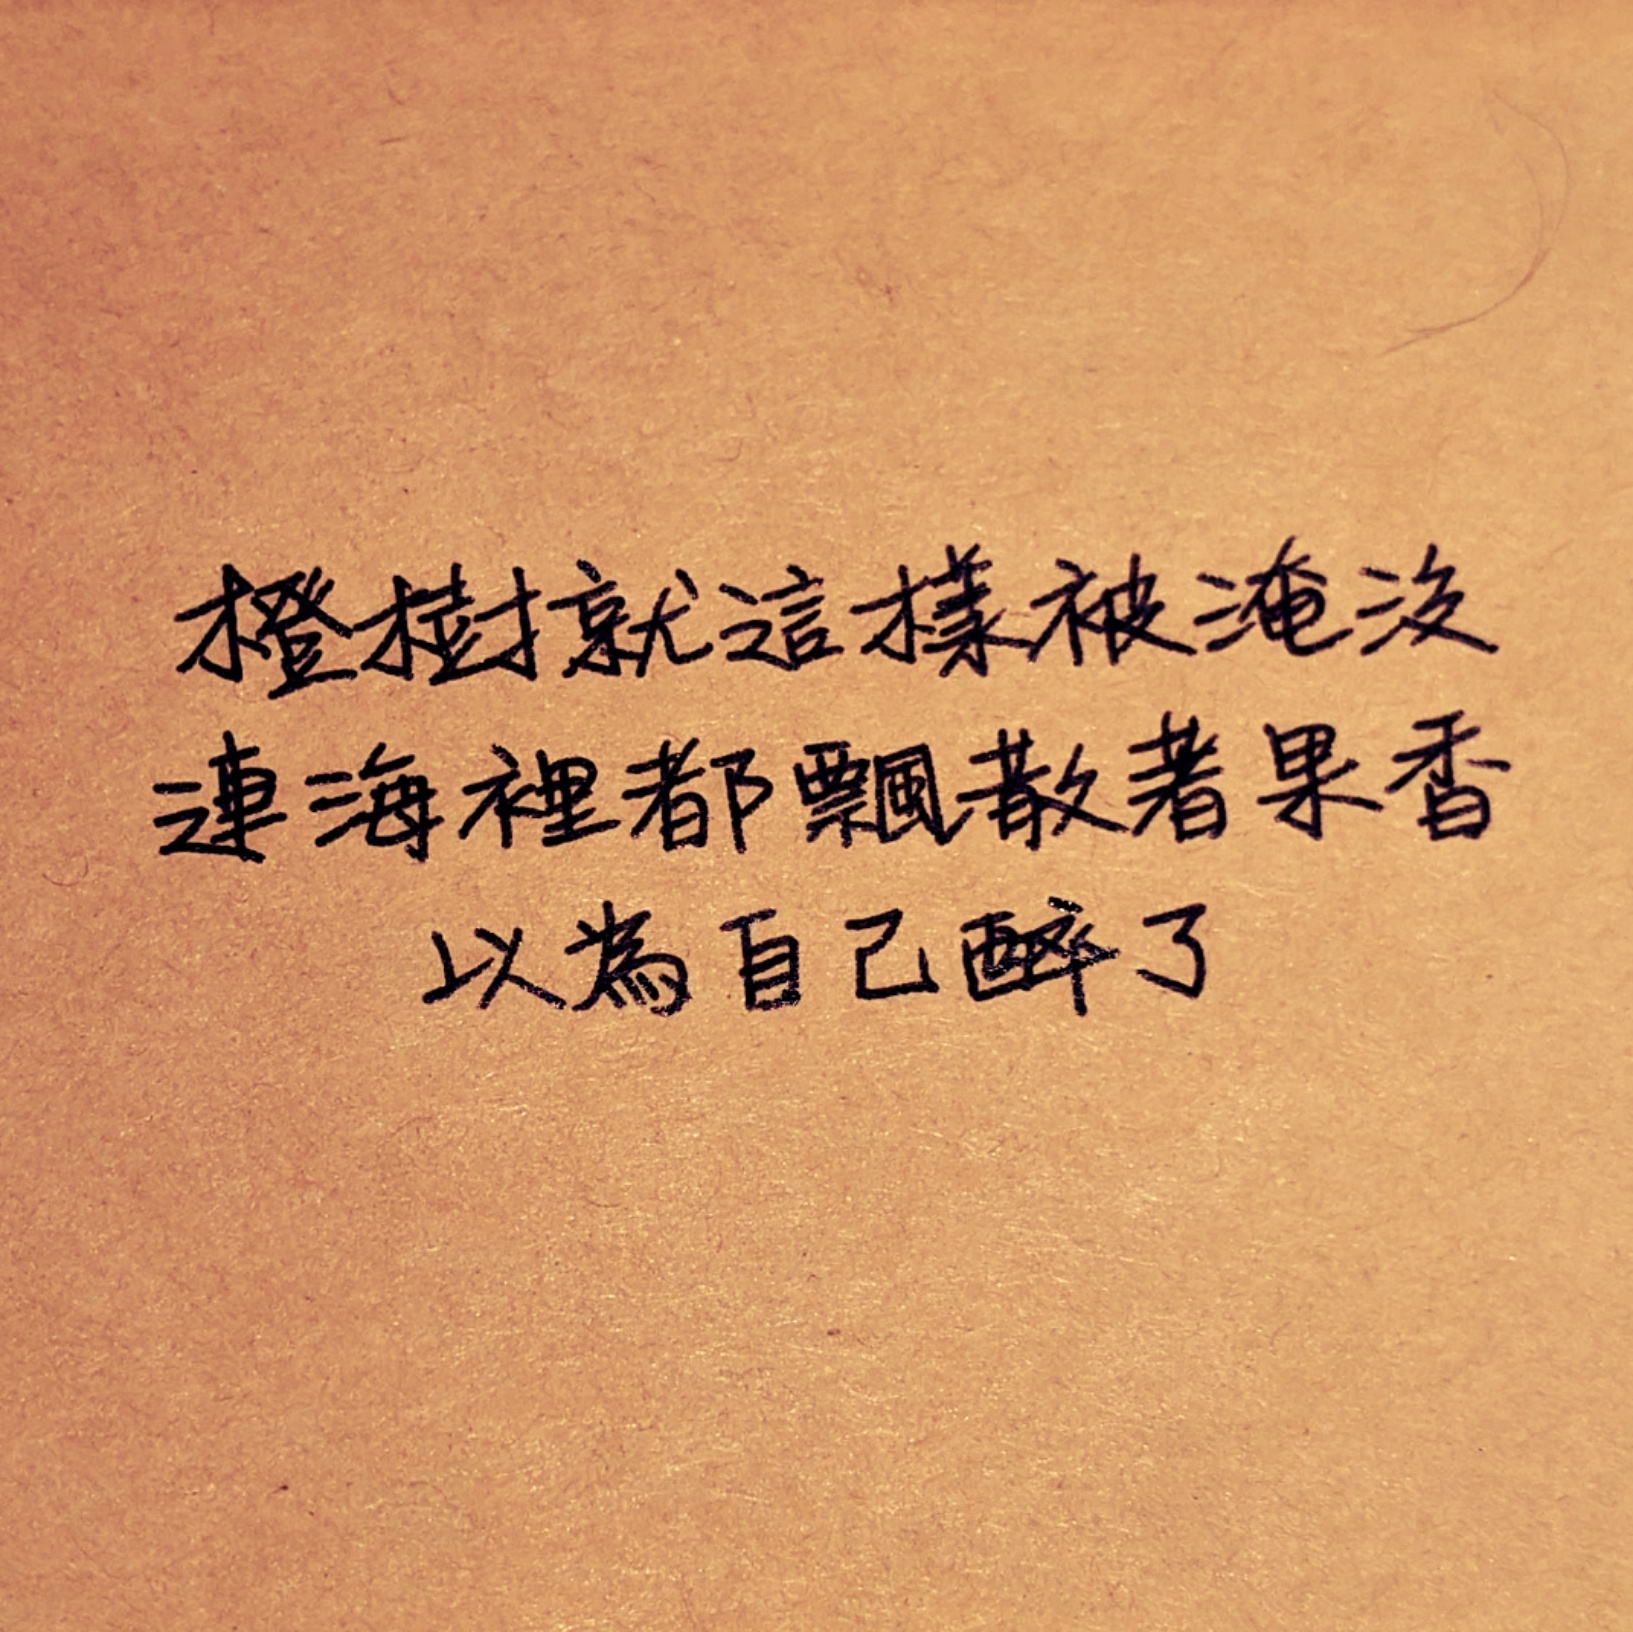 橙樹就這樣被淹沒
連海裡都飄散著果香
以為自己醉了